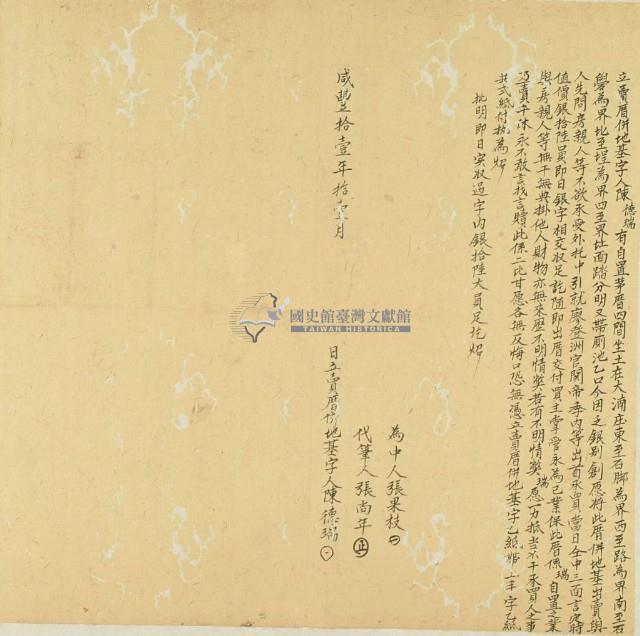 立賣厝併地基字人陳德瑞有自置茅厝四間坐土在大湳庄東至石脚為界西至路為界南至石
礐為界北至埕為界四至界址面踏分明又帶厠池乙口今因乏銀別創愿將此厝併地基出賣與
人先問房親人等不欲承受外托中引就廖登洲官関帝季內等出首承買當日仝中三面言定時
值價銀拾陸員即日銀字相交收足訖隨即出厝交付買主掌管永為己業保此厝係瑞自置之業
與房親人等無干無典掛他人財物亦無來歷不明情獘若有不明情獘瑞愿一力抵當不干承買人之事
一賣千休永不敢言找言贖此係二比甘愿各無反悔口恐無憑立賣厝併地基字乙紙 上手字乙紙
共弍紙付执為炤
批明即日实收過字內銀拾陸大員足訖炤
為中人張果枝
代筆人張尚年
咸豐拾壹年拾壹月 日立賣厝併地基字人陳德瑞
國史館臺灣文獻館
TAIWAN HISTORICA